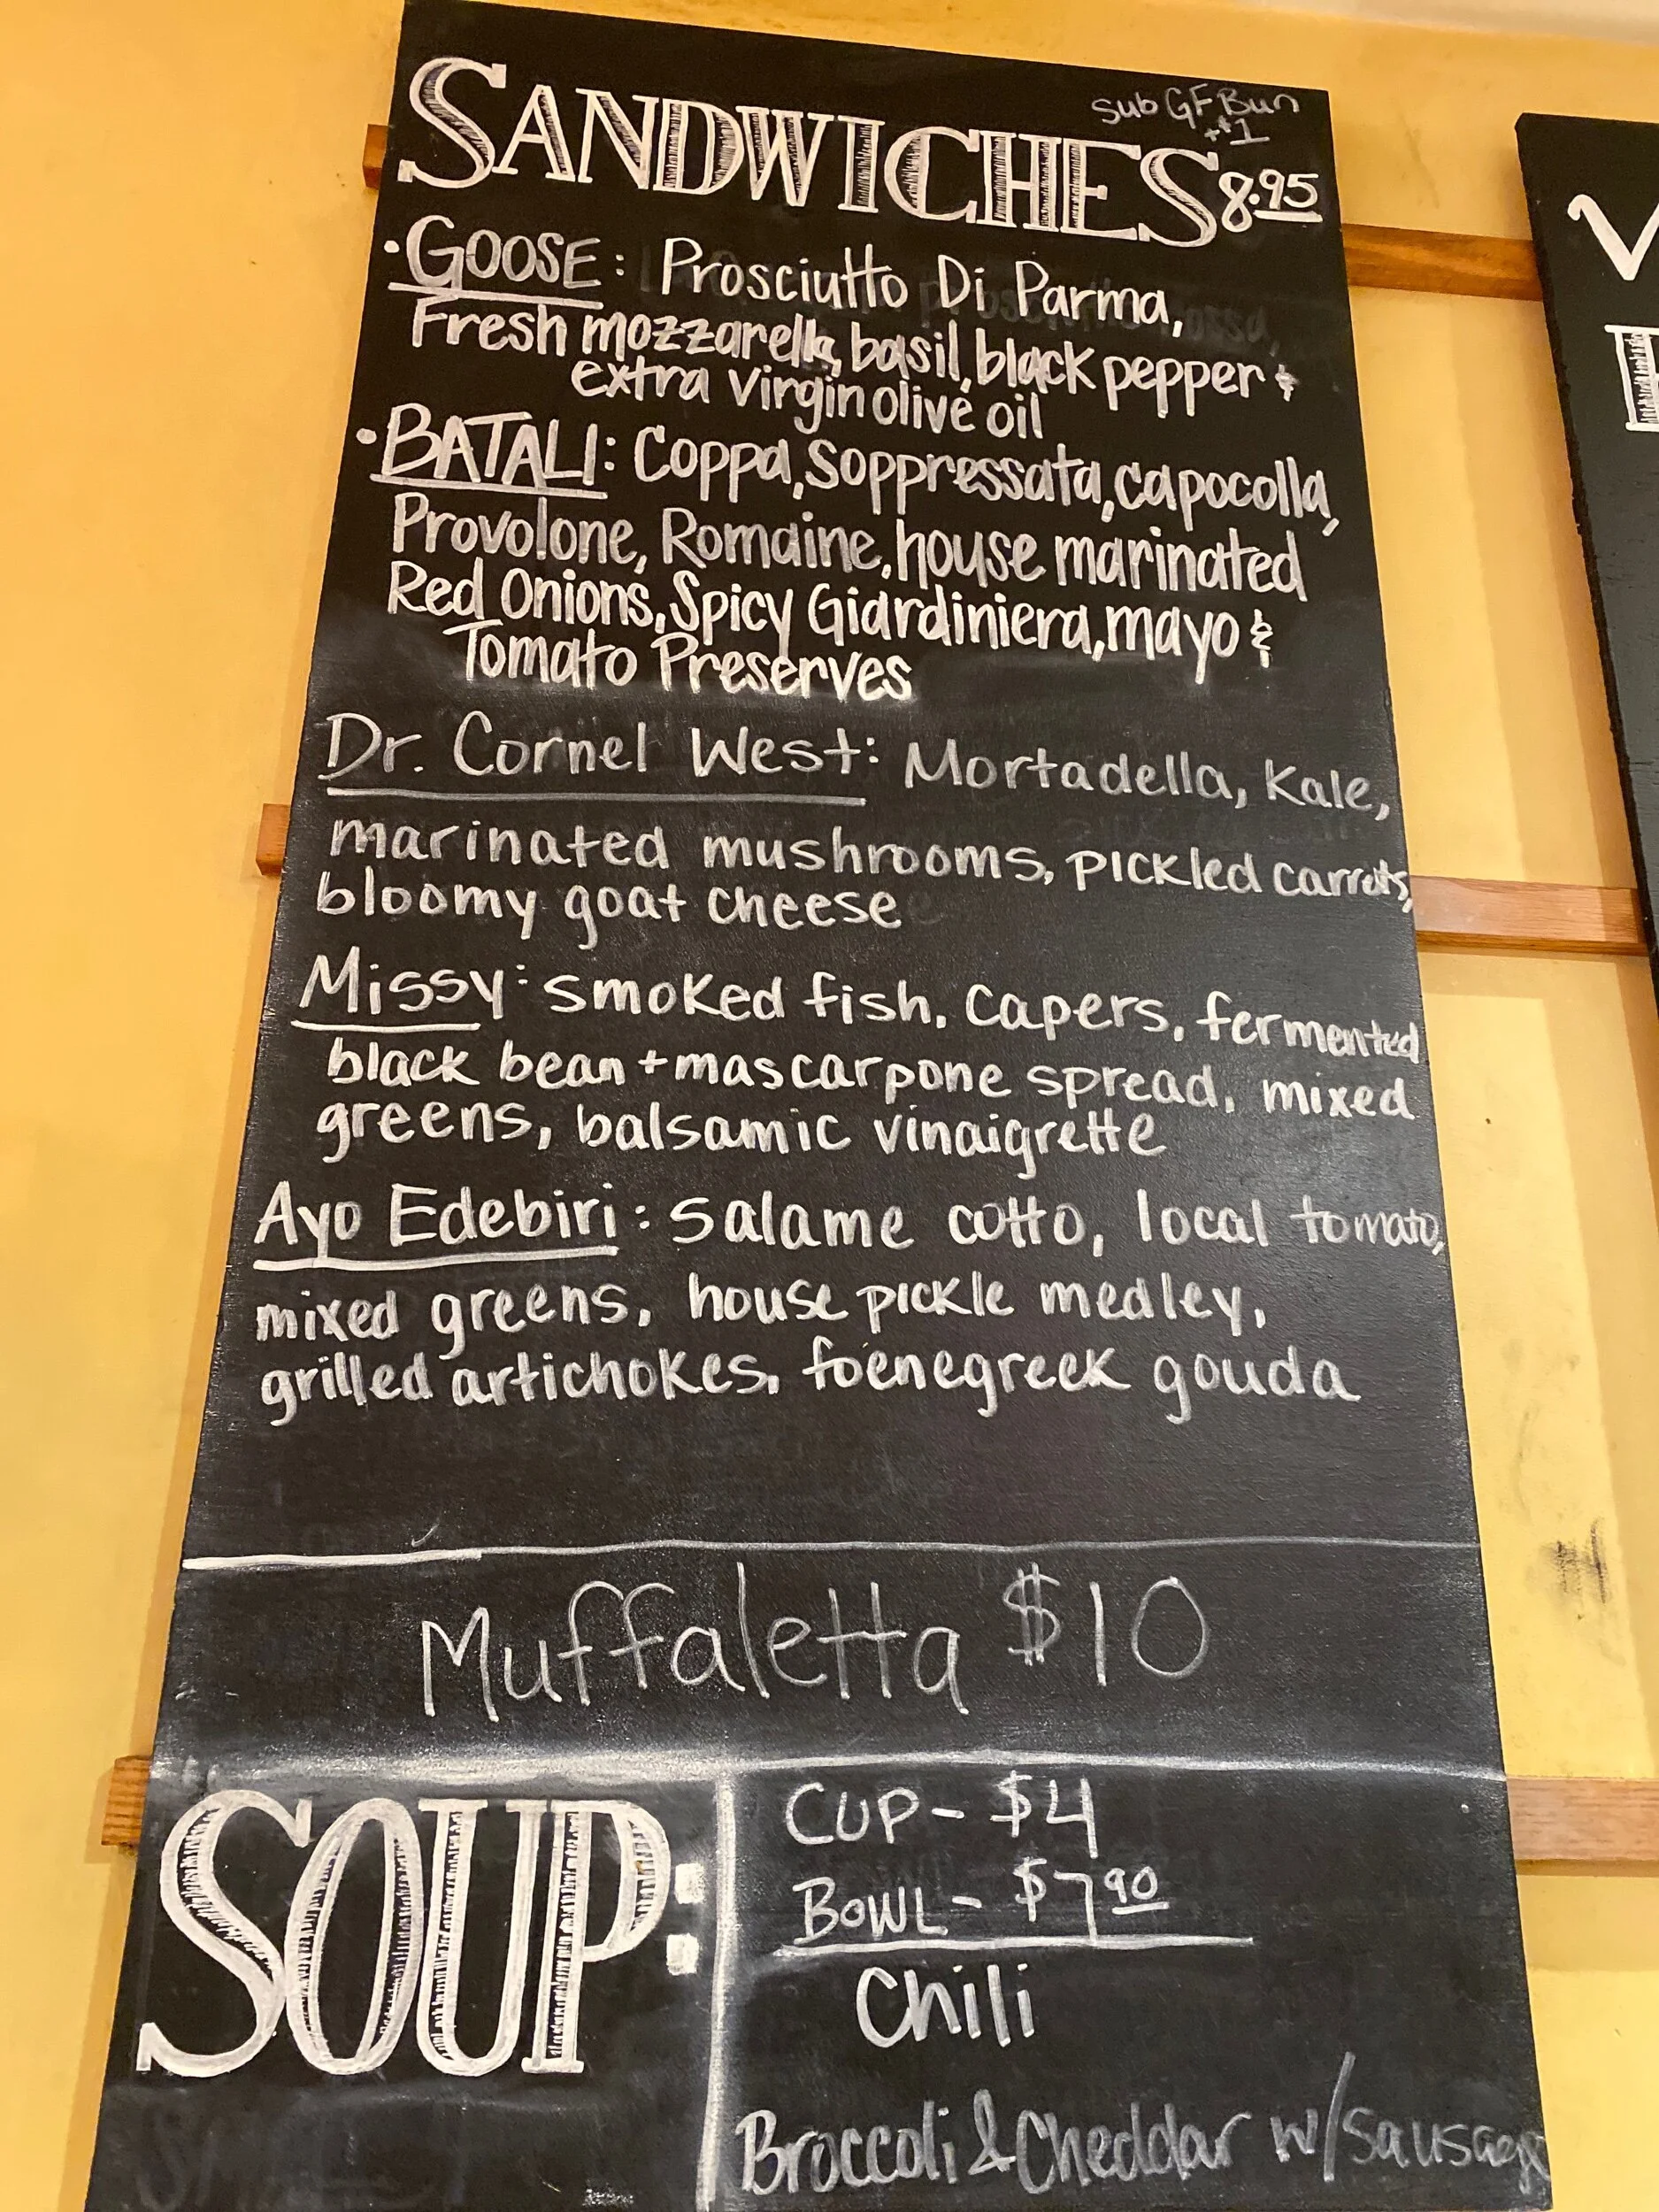 Sub GF Bun
+$1
SANDWICHES 8.95
• GOOSE: Prosciutto Di Parma,
Fresh mozzarella, basil, black pepper &
extra virgin olive oil
• BATALI: Coppa, Soppressata, capocolla,
Provolone, Romaine, house marinated
Red Onions, Spicy Giardiniera, mayo &
Tomato Preserves
Dr. Cornel West: Mortadella, Kale,
marinated mushrooms, pickled carrots,
bloomy goat cheese
Missy: smoked fish, capers, fermented
black bean + mascarpone spread, mixed
greens, balsamic vinaigrette
Ayo Edebiri: salame cotto, local tomato,
mixed greens, house pickle medley,
grilled artichokes, foenegreek gouda
Muffaletta $10
SOUP:
CUP - $4
BOWL - $7.90
Chili
Broccoli & Cheddar w/sausage